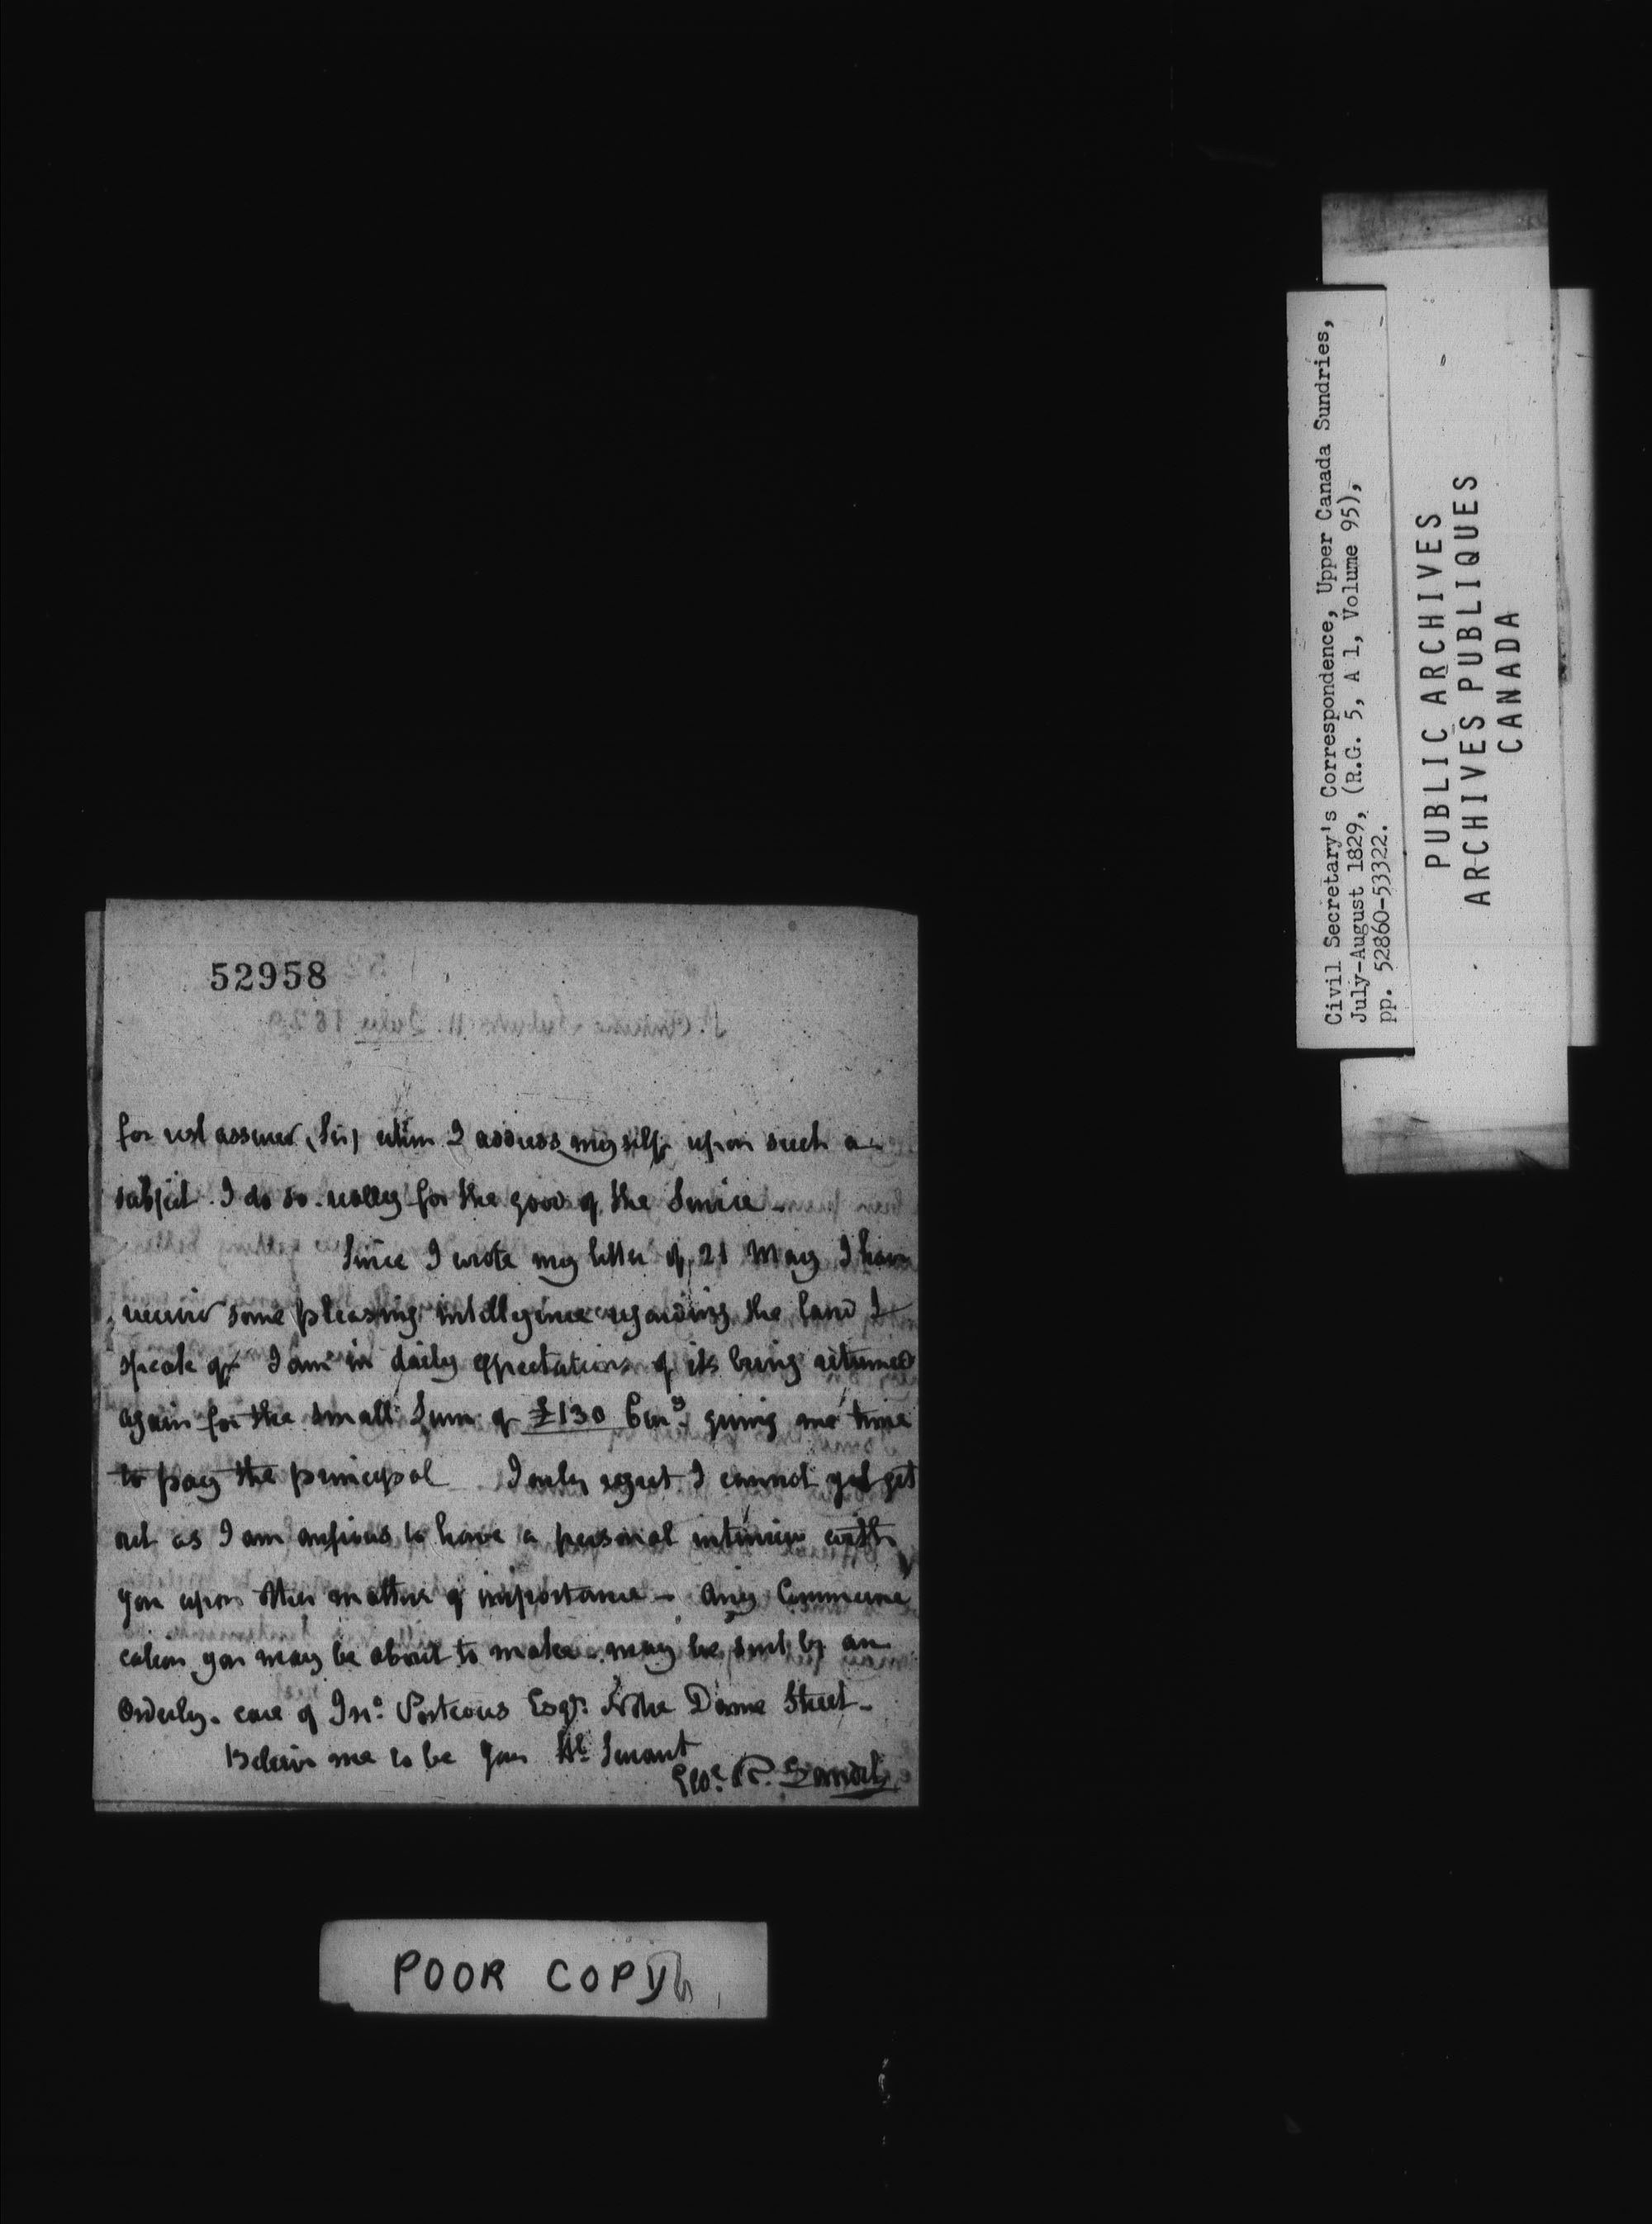 52958
for rest assured, Sir, when I address myself upon such a
subject I do so really for the good of the Service
Since I wrote my letter of 21 May I have
received some pleasing intelligence regarding the land I
speak of I am in daily expectations of its being returned
again for the small Sum of £130 giving me time
to pay the principal I only regret I cannot yet get
out as I am anxious to have a personal interview with
you upon other matters of importance - Any Communi
cation you may be about to make may be sent by an
Orderly. care of Jno. Porteous Esqr. Notre Dame Street -
Believe me to be your Hl. Servant
Geo. R.
POOR COPY
Civil Secretary's Correspondence, Upper Canada Sundries,
July-August 1829, (R.G. 5, A 1, Volume 95),
pp. 52860-53322.
PUBLIC ARCHIVES
ARCHIVES PUBLIQUES
CANADA